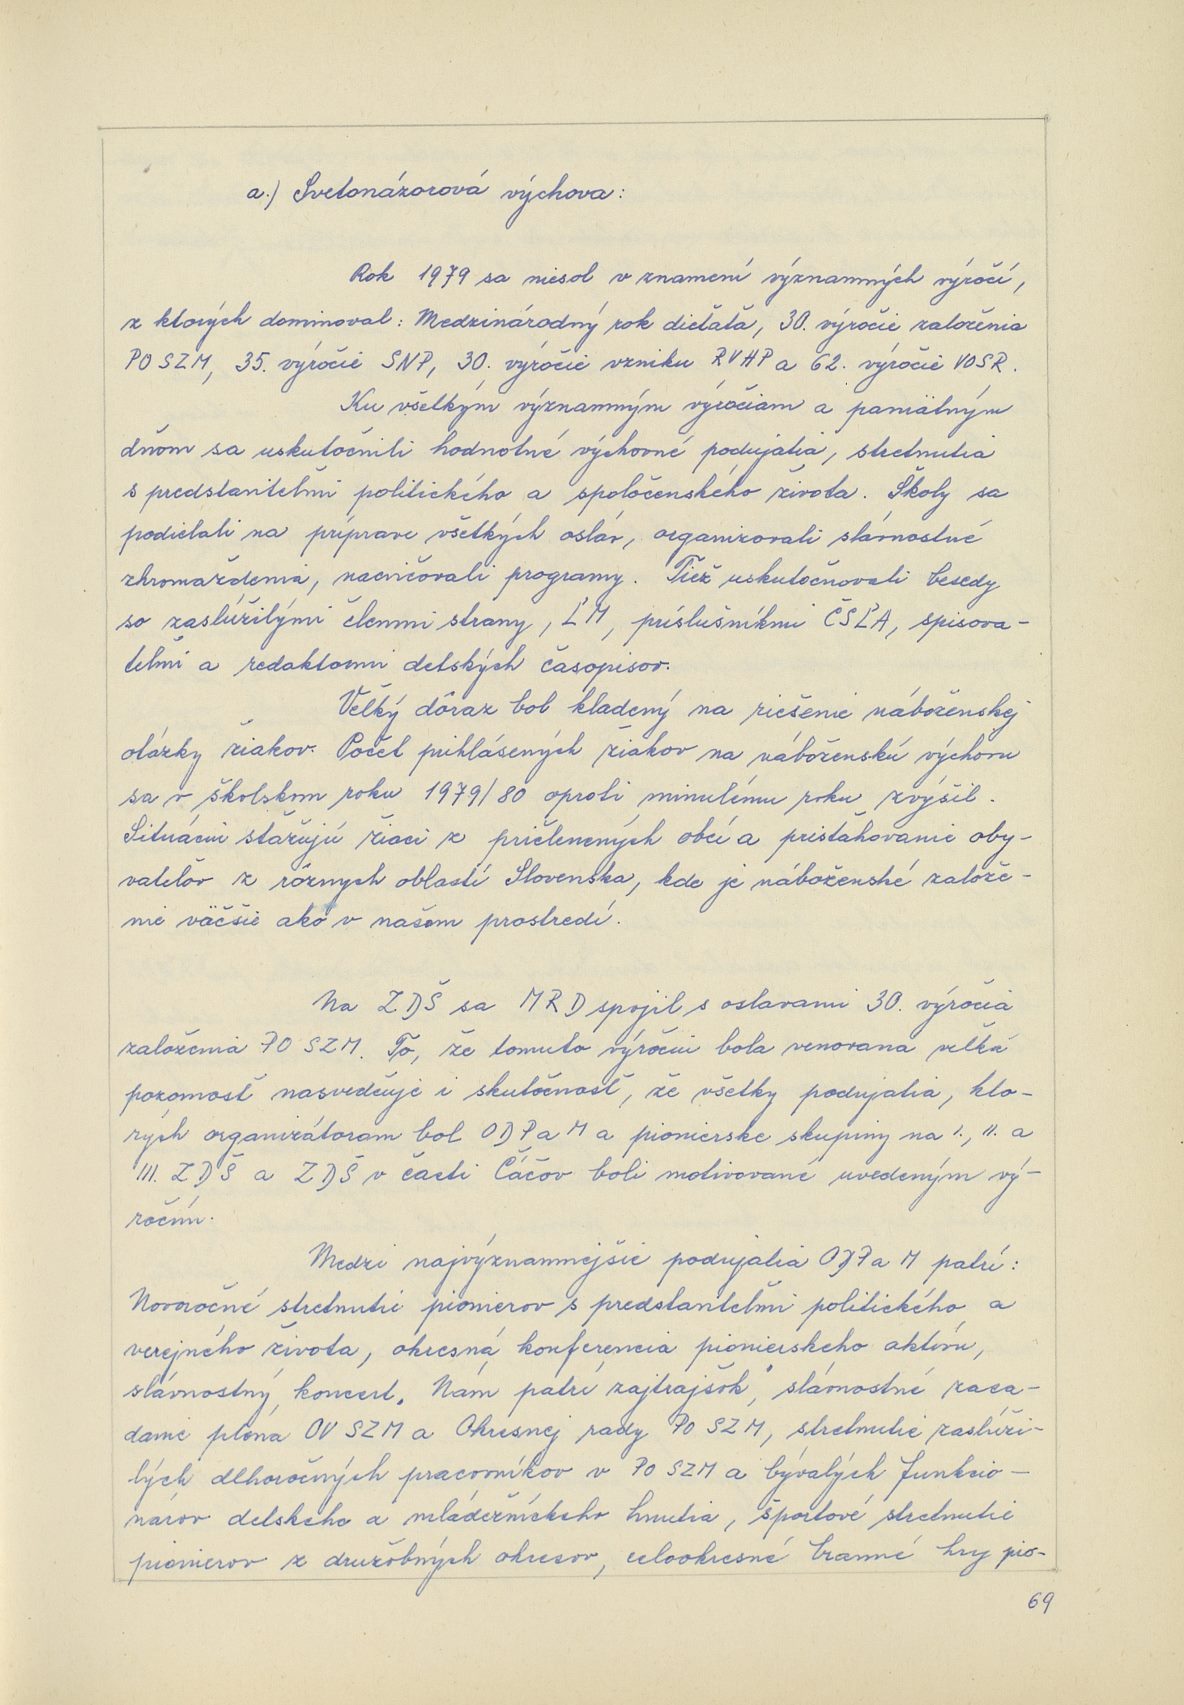 a.) Svetonázorová výchova:
Rok 1979 sa niesol v znamení významných výročí,
z ktorých dominoval: Medzinárodný rok dieťaťa, 30. výročie založenia
PO SZM, 35. výročie SNP, 30. výročie vzniku RVHP a 62. výročie VOSR.
Ku všetkým významným výročiam a pamätným
dňom sa uskutočnili hodnotné výchovné podujatia, stretnutia
s predstaviteľmi politického a spoločenského života. Školy sa
podielali na príprave všetkých osláv, organizovali slávnostné
zhromaždenia, nacvičovali programy. Tiež uskutočňovali besedy
so zaslúžilými členmi strany, ĽM, príslušníkmi ČSĽA, spisova-
teľmi a redaktormi detských časopisov.
Veľký dôraz bol kladený na riešenie náboženskej
otázky žiakov. Počet prihlásených žiakov na náboženskú výchovu
sa v školskom roku 1979/80 oproti minulému roku zvýšil.
Situáciu sťažujú žiaci z pričlenených obcí a prisťahovanie oby-
vateľov z rôznych oblastí Slovenska, kde je náboženské založe-
nie väčšie ako v našom prostredí.
Na ZDŠ sa MRD spojil s oslavami 30. výročia
založenia PO SZM. To, že tomuto výročiu bola venovaná veľká
pozornosť nasvedčuje i skutočnosť, že všetky podujatia, kto-
rých organizátorom bol ODPaM a pionierske skupiny na I., II. a
III. ZDŠ a ZDŠ v časti Čáčov boli motivované uvedeným vý-
ročím.
Medzi najvýznamnejšie podujatia ODPaM patrí:
Novoročné stretnutie pionierov s predstaviteľmi politického a
verejného života, okresná konferencia pionierskeho aktívu,
slávnostný koncert „Nám patrí zajtrajšok", slávnostné zasa-
danie pléna OV SZM a Okresnej rady PO SZM, stretnutie zaslúži-
lých dlhoročných pracovníkov v PO SZM a bývalých funkcio-
nárov detského a mládežníckeho hnutia, športové stretnutie
pionierov z družobných okresov, celookresné branné hry pio-
69